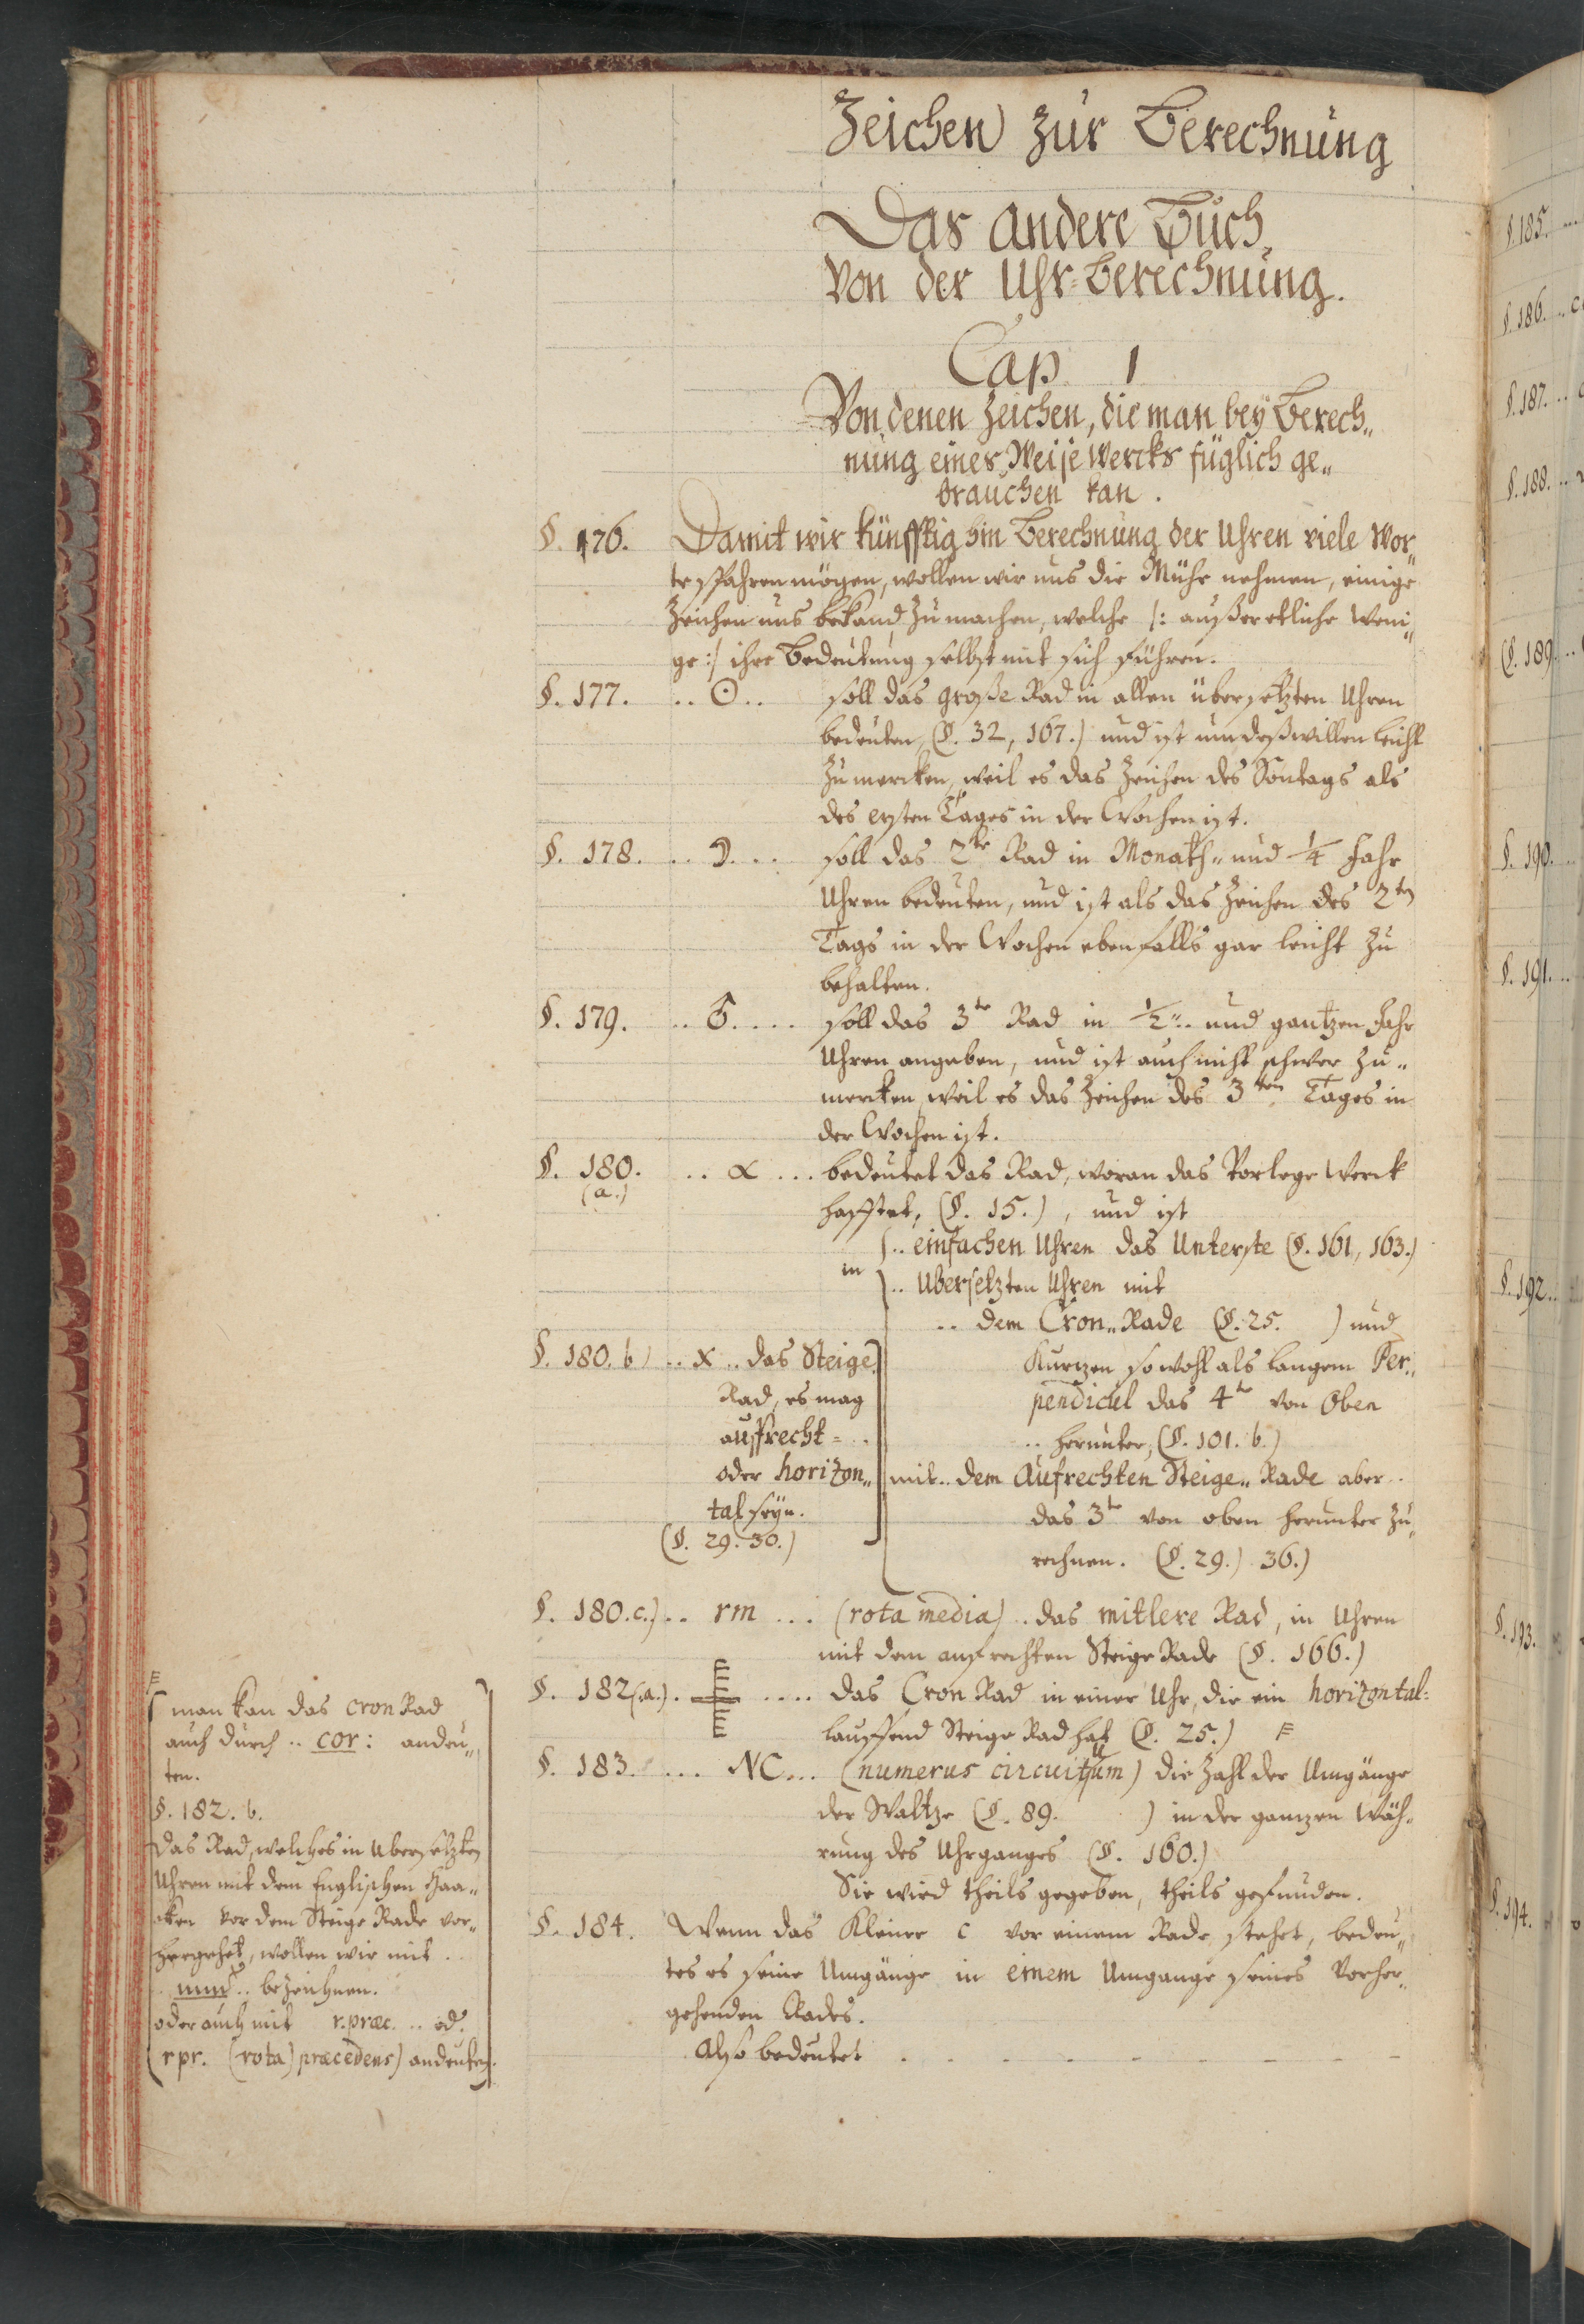 Zeichen zur Berechnung
Das andere Buch,
Von der Uhr=Berechnung.
Cap. 1
Von denen Zeichen, die man bey Berech„
nung eines Weise Wercks füglich ge„
brauchen kan.
§. 176. Damit wir künfftig hin Berechnung der Uhren viele Wor„
te spahren mögen, wollen wir uns die Mühe nehmen, einige
Zeichen uns bekand zu machen, welche /: außer etliche weni„
ge :/ ihre Bedeutung selbst mit sich führen.
§. 177. .. ☉ .. soll das große Rad in allen übersetzten Uhren
bedeuten, (§. 32, 167.) und ist um deßwillen leicht
zu mercken, weil es das Zeichen des Sontags als
des ersten Tages in der Wochen ist.
§. 178. .. ☽. .. soll das 2te Rad in Monath„ und 1/4 Jahr
Uhren bedeuten, und ist als das Zeichen des 2ten
Tags in der Wochen ebenfalls gar leicht zu
behalten.
§. 179. .. ♂. ... soll das 3te Rad in 1/2 „.. und gantzen Jahr
Uhren angeben, und ist auch nicht schwer zu„
mercken, weil es das Zeichen des 3ten Tages in
der Wochen ist.
§. 180. (a.) .. α ... bedeutet das Rad, woran das Vorlege Werck
hafftet, (§. 15.), und ist
in .. einfachen Uhren das Unterste (§. 161, 163.)
.. Ubersetzten Uhren mit
.. dem Cron„ Rade (§. 25. ) und
Kurtzen sowohl als langem Per„
pendicul das 4te von Oben
.. herunter, (§. 101. b.)
mit .. dem Aufrechten Steige„ Rade aber ..
das 3te von oben herunter zu„
rechnen. (§. 29.) 36.)
§. 180. b) .. x .. das Steige
Rad, es mag
auffrecht = ..
oder horizon„
tal seyn.
(§. 29. 30.)
§. 180. c.) .. rm ... (rota media) .. das mitlere Rad, in Uhren
mit dem aufrechten Steige Rade (§. 166.)
§. 182 (a.) . .... das Cron Rad in einer Uhr, die ein horizontal=
lauffend Steige Rad hat (§. 25.)
§. 183. ... NC ... (numerus circuituum) die Zahl der Umgänge
der Waltze (§. 89. ) in der gantzen Wäh„
rung des Uhrganges (§. 160.)
Sie wird theils gegeben, theils gefunden.
§. 184. Wenn das Kleine c vor einem Rade stehet, bedeu„
tet es seine Umgänge in einem Umgange seines Vorher„
gehenden Rades.
Also bedeutet . . . . . . .
man kan das cron Rad
auch durch .. cor: andeu„
ten.
§. 182. b.
das Rad, welches in Ubersetzten
Uhren mit dem Englischen Haa„
cken vor dem Steige Rade vor„
hergehet, wollen wir mit ..
.. bezeichnen.
oder auch mit r. præc. .. od.
r pr. (rota) præcedens) andeuten.
§. 185.
§. 186.
§. 187.
§. 188.
§. 189.
§. 190.
§. 191.
§. 192.
§. 193.
§. 194.